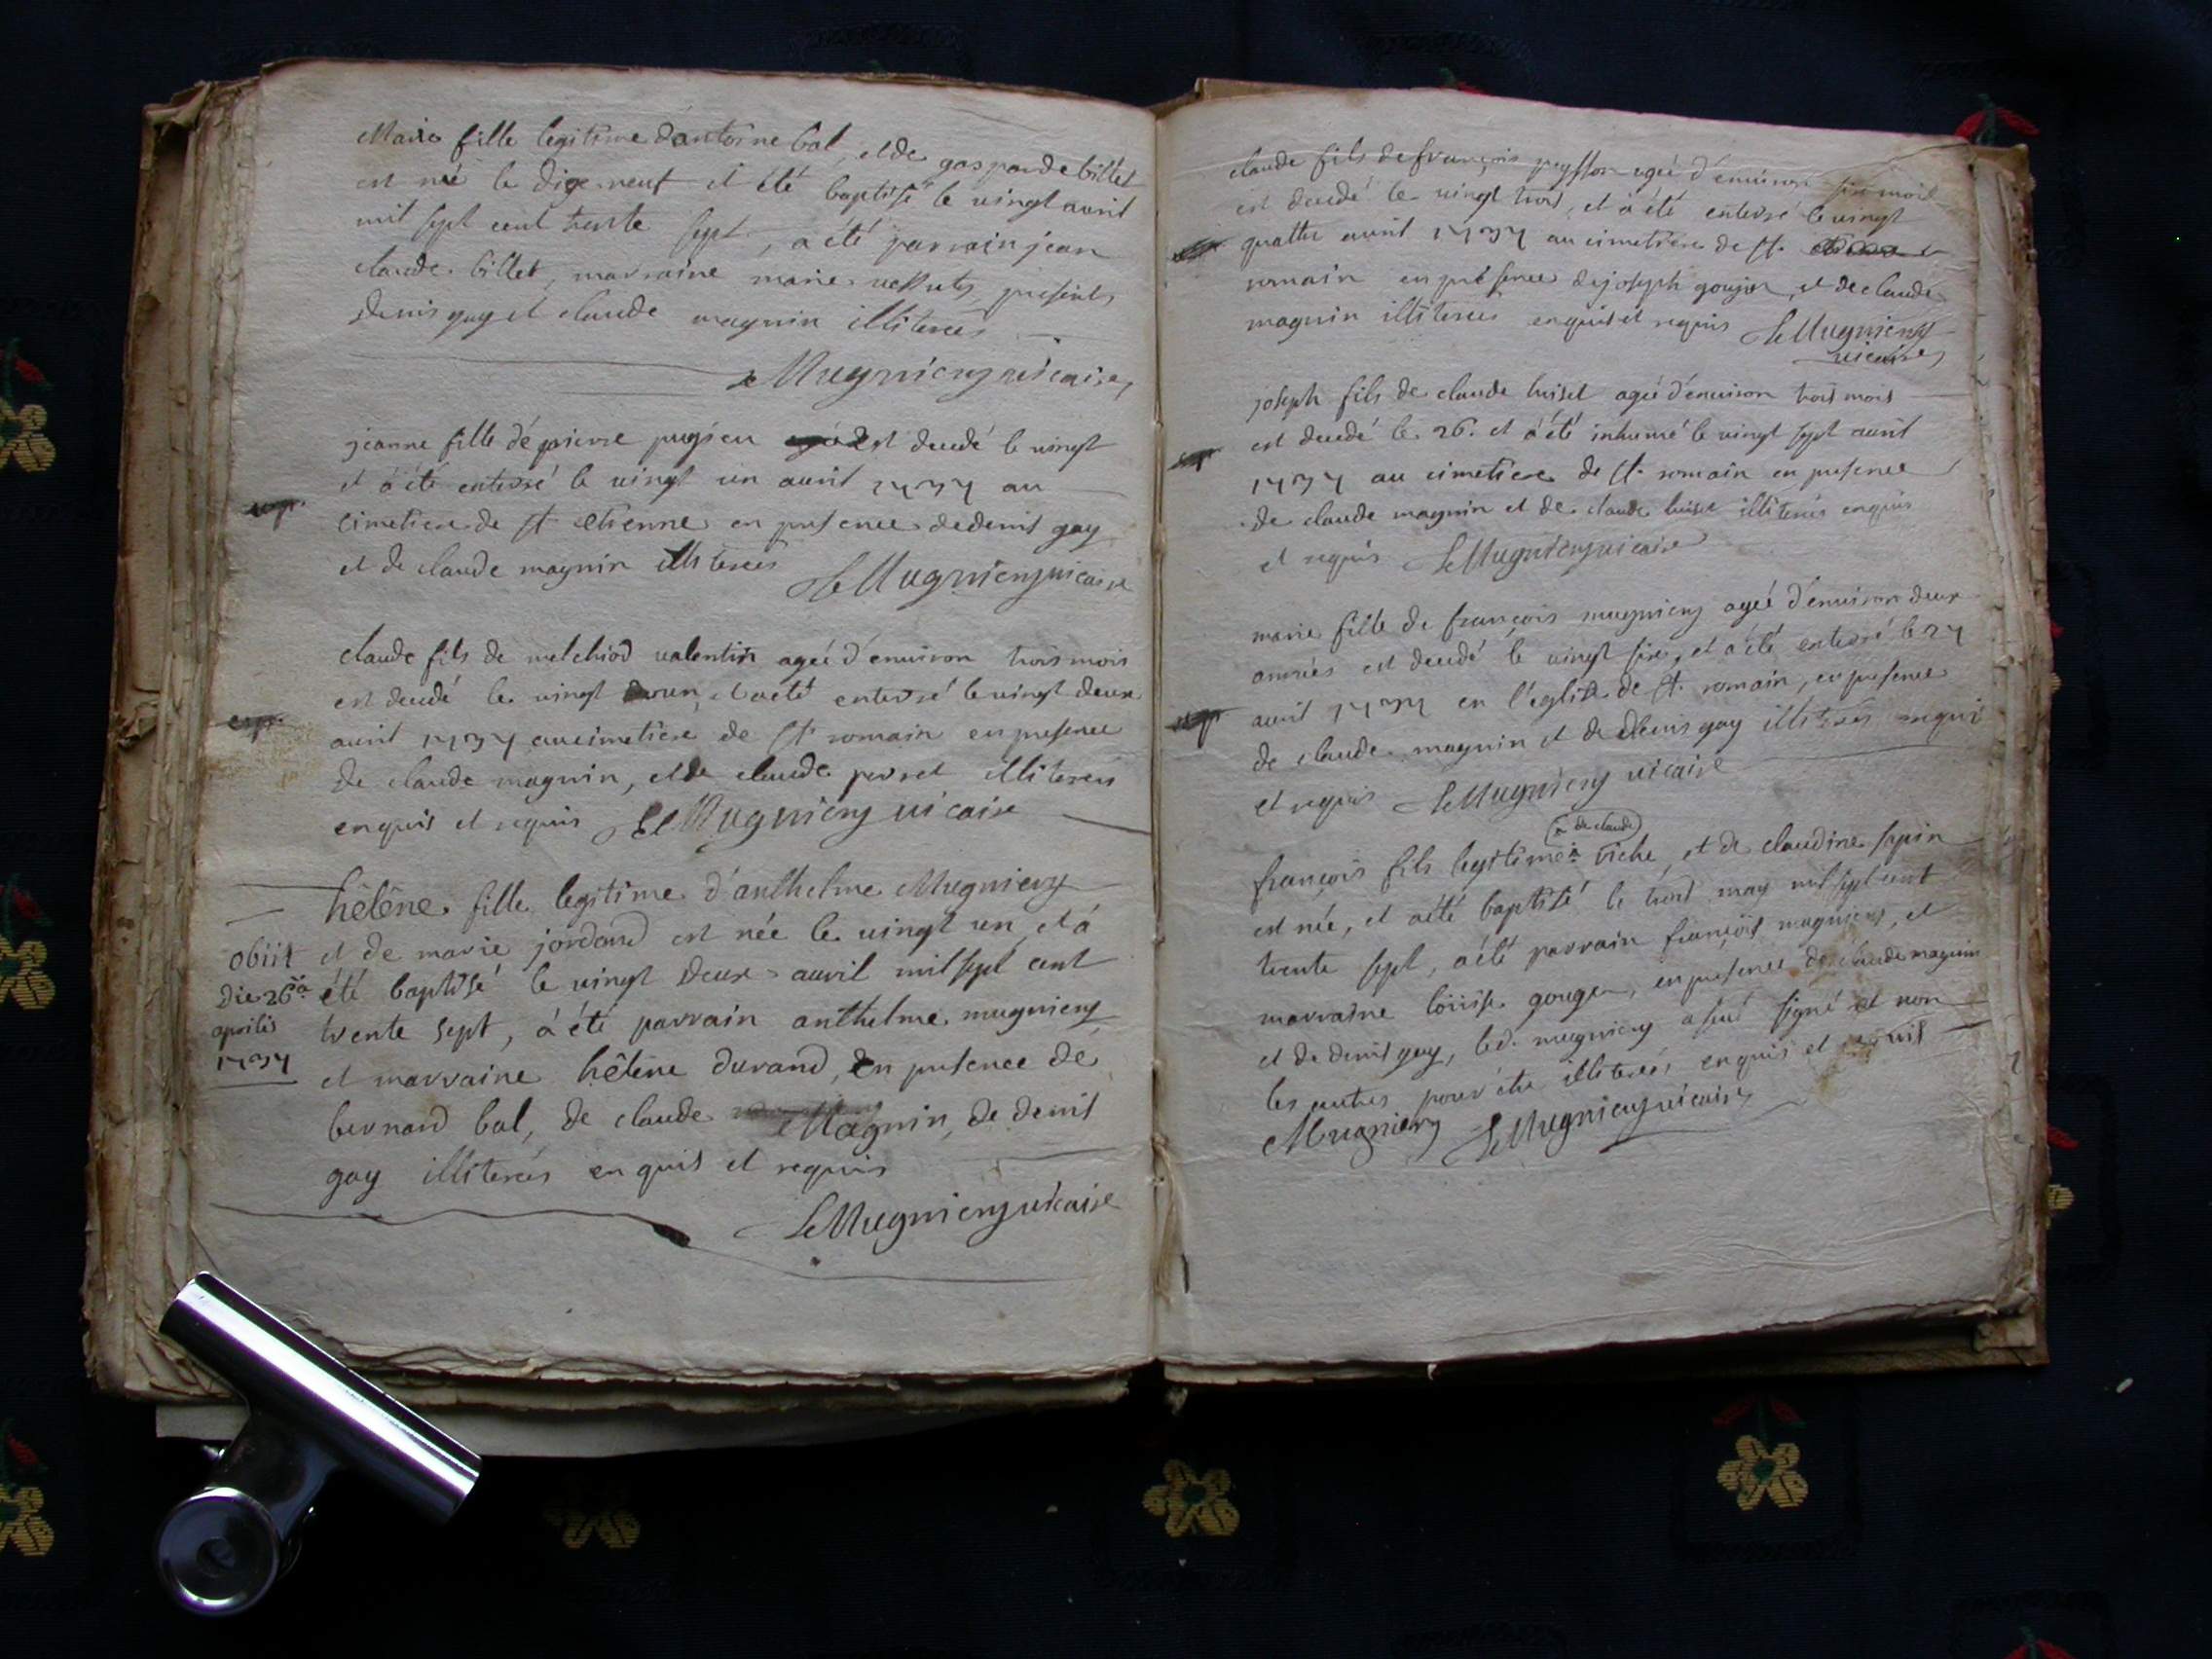 Marie fille legitime d'antoine bal, et de gasparde billet
est née le dix neuf et été baptisé le vingt avril
mil sept cent trente sept, a été parrain jean
claude billet, marraine marie presents
denis gay et claude magnin illiterés
Mugniery vicaire
jeanne fille de pierre pugieu est decedé le vingt
et a été enterré le vingt un avril 1737 au
cimetiere de st etienne en presence de denis gay
et de claude magnin illiterés
Mugniery vicaire
claude fils de melchiod valentin agée d'environ trois mois
est decedé le vingt un, et a eté enterré le vingt deux
avril 1737 au cimetiere de st romain en presence
de claude magnin, et de claude perret illiterés
enquis et requis Mugniery vicaire
hêlêne fille legitime d'anthelme Mugniery
et de marie jordand est née le vingt un, et á
été baptisé le vingt deux avril mil sept cent
trente sept, á été parrain anthelme mugniery
et marraine hêlêne durand, en presence de
bernard bal, de claude Magnin, de denis
gay illiterés enquis et requis
Mugniery vicaire
obiit
die 26a
aprilis
1737
claude fils de françois peysson agée d'environ six mois
est decedé le vingt trois, et a été enterré le vingt
quattre avril 1737 au cimetiere de st.
romain en presence de joseph goujon, et de claude
magnin illiterés enquis et requis Mugniery
vicaire
joseph fils de claude luiset agée d'environ trois mois
est decedé le 26. et a été inhumé le vingt sept avril
1737 au cimetiere de st. romain en presence
de claude magnin et de claude luiset illiterés enquis
et requis Mugniery vicaire
marie fille de françois mugniery agée d'environ deux
années est decedé le vingt six, et a été enterré le 27
avril 1737 en l'eglise de st. romain, en presence
de claude magnin et de denis gay illiterés enquis
et requis Mugniery vicaire
de claude
françois fils legitime viché, et de claudine sepin
est née, et a été baptisé le trois may mil sept cent
trente sept, a été parrain françois mugniery, et
marraine loüise gouge, en presence de claude magnin
et de denis gay, led. mugniery a seul signé et non
les autres pour être illiterés, enquis et requis
Mugniery Mugniery vicaire